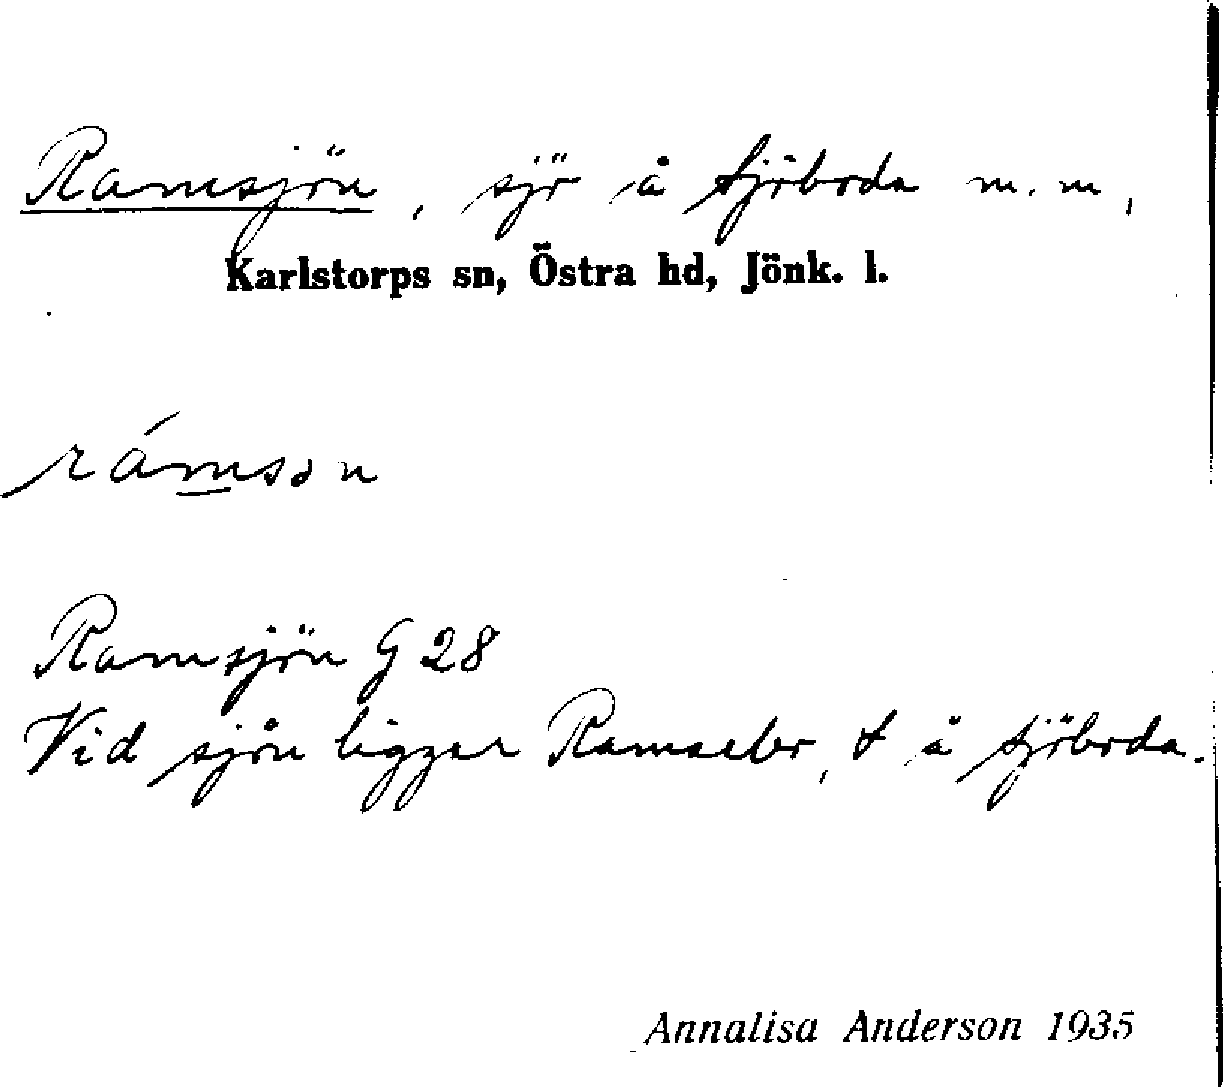 Ramsjön, sjö å Sjöboda m.m,
Karlstorps sn, Östra hd, Jönk. l.
rámsɔn
Ramsjön G 28
Vid sjön ligger Ramsebo, t å Sjöboda.
Annalisa Anderson 1935